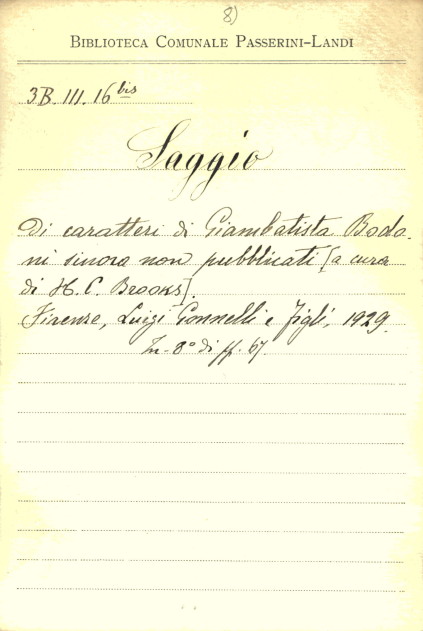 8)
BIBLIOTECA COMUNALE PASSERINI-LANDI
3B. III. 16 bis
Saggio
Di caratteri di Giambatista Bodo-
ni sinora non pubblicati [a cura
di H. C. Brooks].
Firenze, Luigi Gonnelli e figli, 1929.
In-8° di ff. 67.